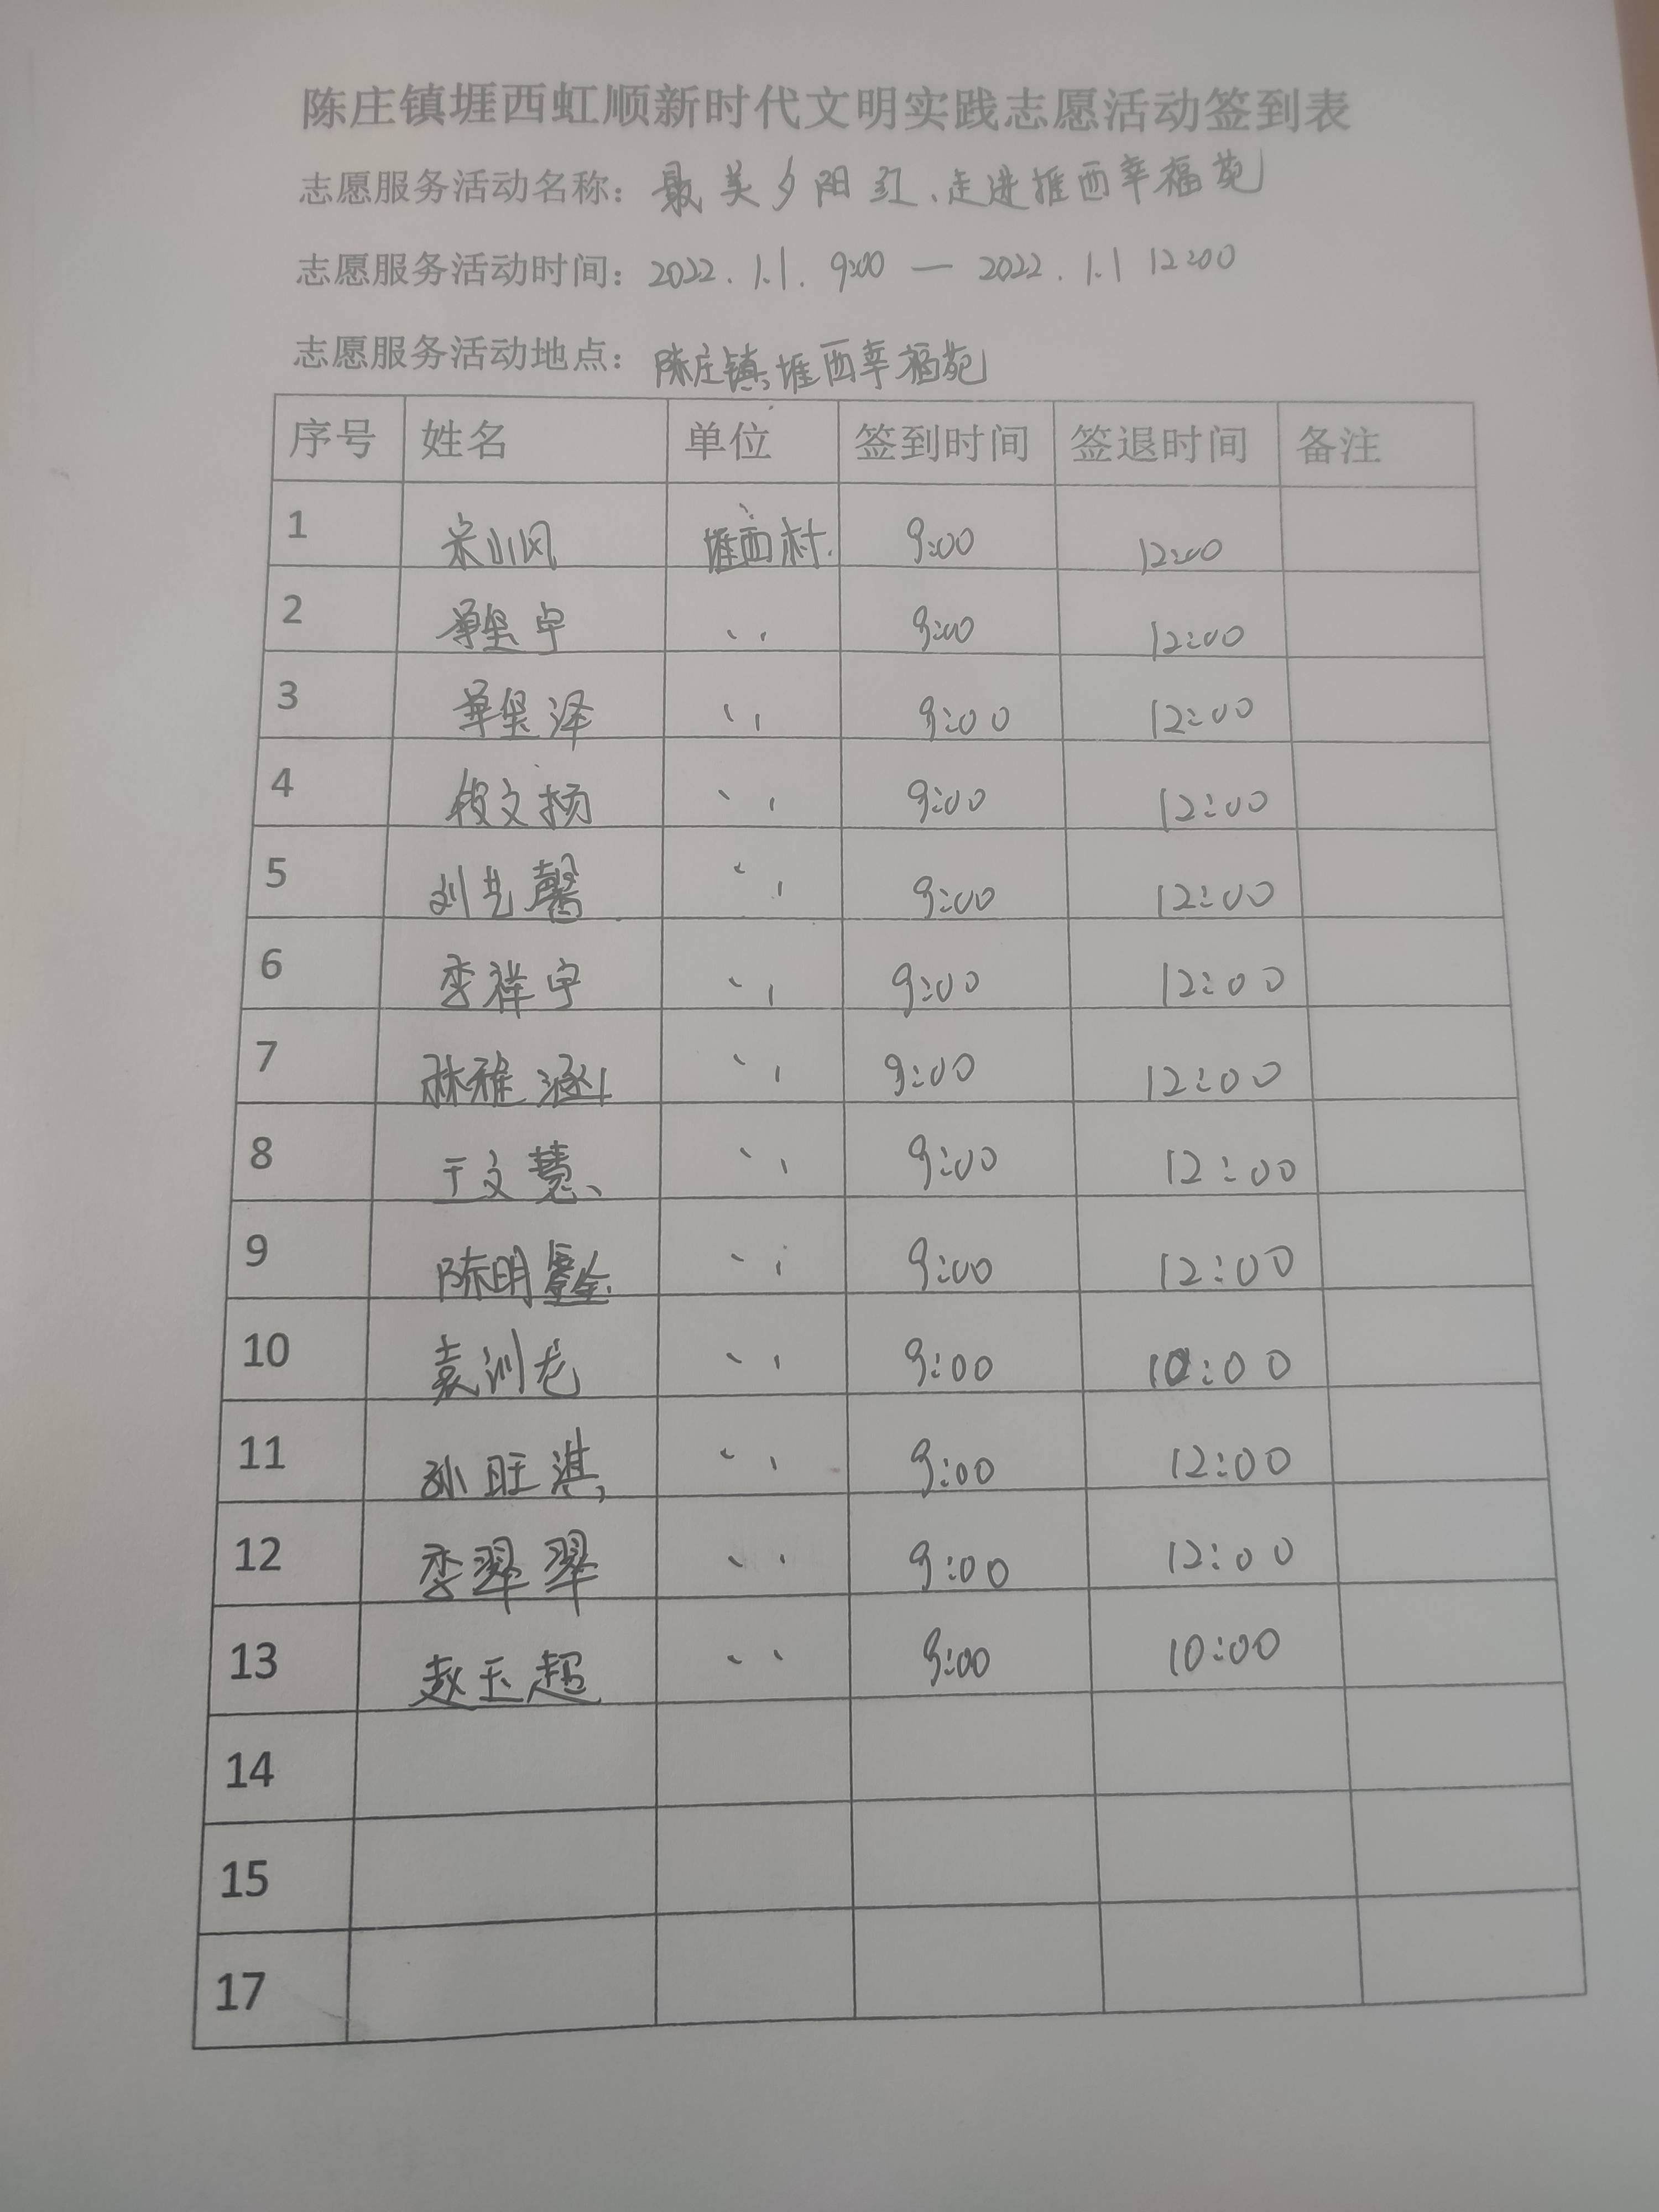 陈庄镇堐西虹顺新时代文明实践志愿活动签到表
志愿服务活动名称：最美夕阳红、走进堐西幸福苑
志愿服务活动时间：2022.1.1. 9:00 — 2022.1.1 12:00
志愿服务活动地点：陈庄镇堐西幸福苑
序号 姓名 单位 签到时间 签退时间 备注
1 宋小风 堐西村. 9:00 12:00
2 宇 、、 9:00 12:00
3 泽 、、 9:00 12:00
4 段文扬 、、 9:00 12:00
5 刘艺馨 、、 9:00 12:00
6 李祥宇 、、 9:00 12:00
7 林雅涵 、、 9:00 12:00
8 于文慧 、、 9:00 12:00
9 陈明鑫 、、 9:00 12:00
10 袁训龙 、、 9:00 :00
11 孙旺淇 、、 9:00 12:00
12 李翠翠 、、 9:00 12:00
13 赵玉超 、、 9:00 10:00
14
15
17